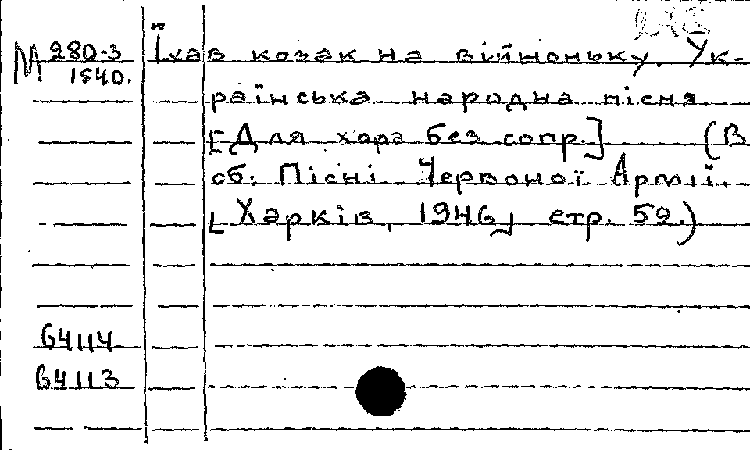 М 280-3 Їхав козак на війноньку. Ук-
1540. раїнська народна пісня
[Для хора без сопр.] (В
сб: Пісні Червоної Армії.
[Харків, 1946] стр. 59.)
64114
64113